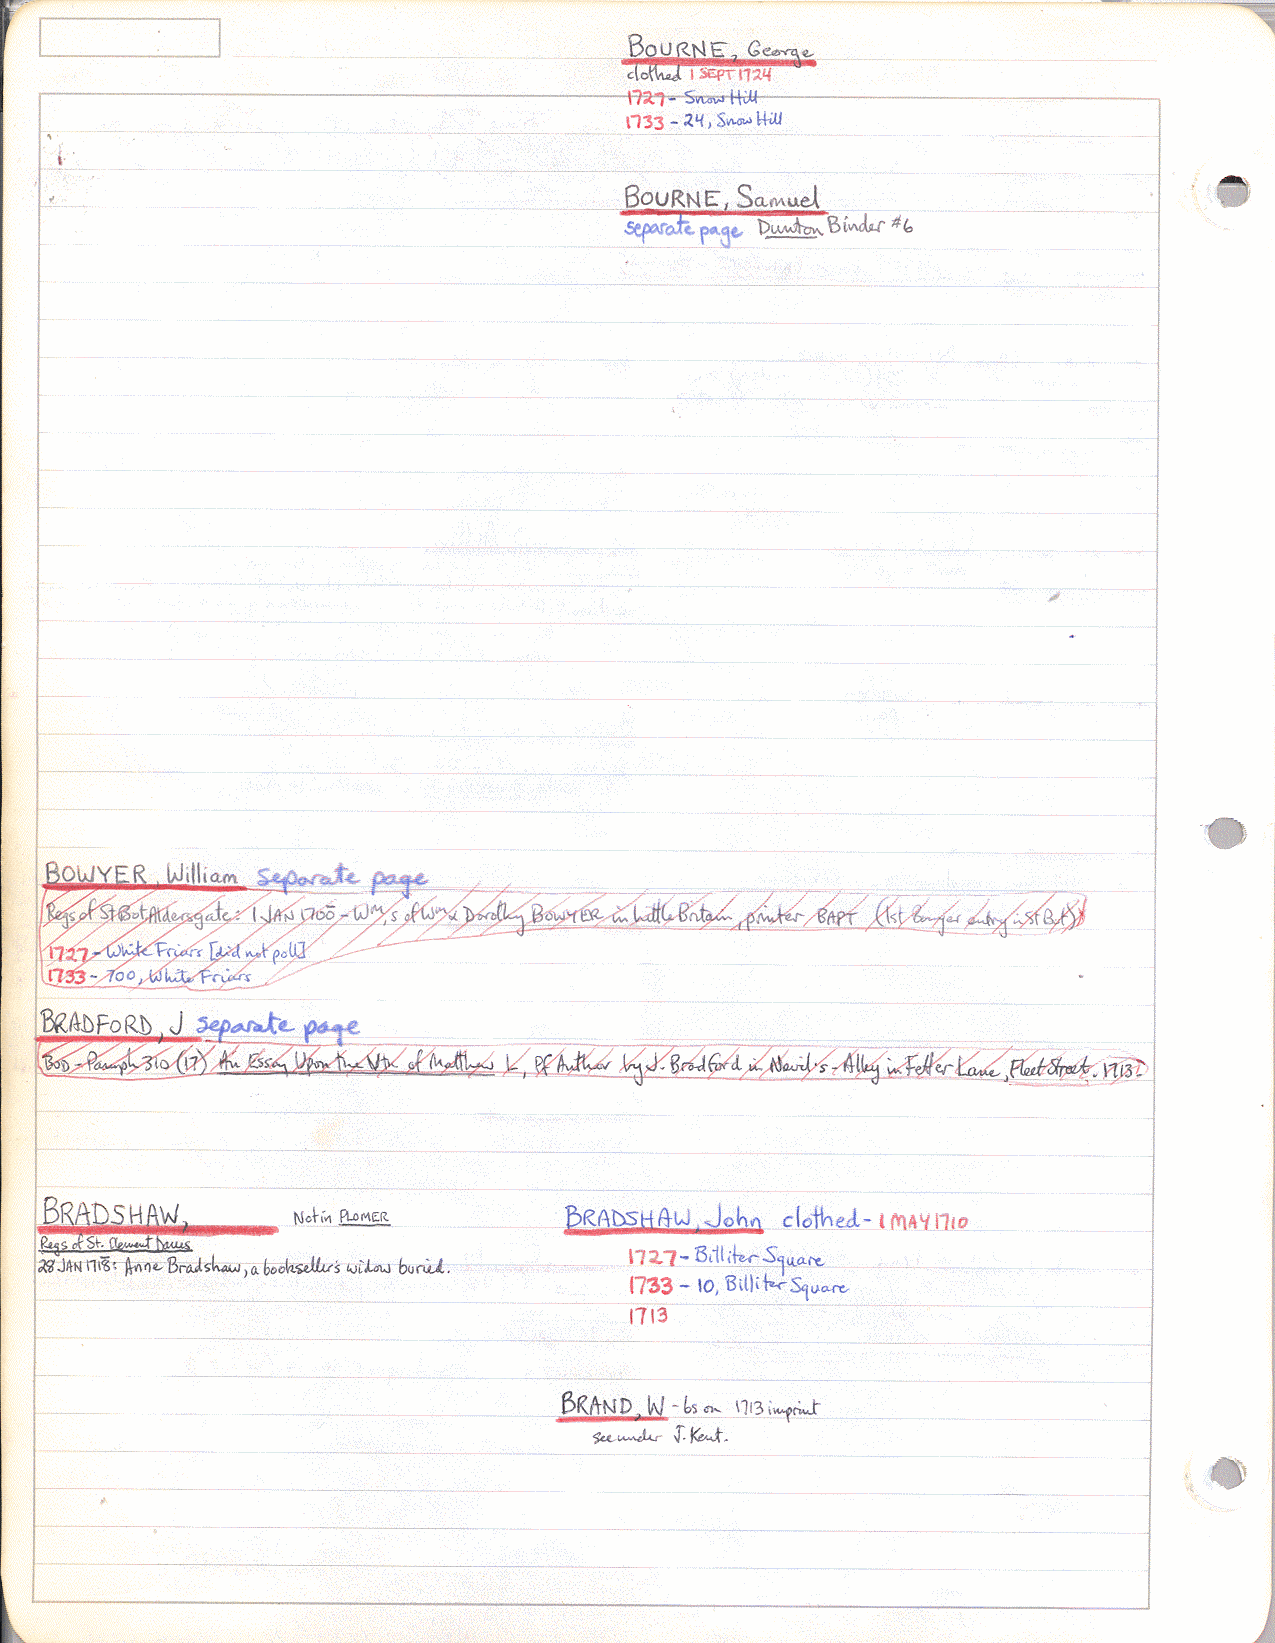 BOURNE, George
clothed 1 SEPT 1724
1727 - Snow Hill
1733 - 24, Snow Hill
BOURNE, Samuel
separate page Dunton Binder #6
BOWYER, William separate page
Regs of St Bot Aldersgate: 1 JAN 1700 - Wm, s of Wm & Dorothy BOWYER in Little Britain, printer BAPT (1st Bowyer entry in St Bot)
1727 - White Friars [did not poll]
1733 - 700, White Friars
BRADFORD, J separate page
BOD - Pamph 310 (17) An Essay Upon the Vth of Matthew Pf Author by J. Bradford in Nevil's-Alley in Fetter Lane, Fleet Street. 1713.
BRADSHAW, Not in PLOMER
Regs of St. Clement Danes
28 JAN 1718: Anne Bradshaw, a bookseller's widow buried.
BRADSHAW, John clothed - 1 MAY 1710
1727 - Billiter Square
1733 - 10, Billiter Square
1713
BRAND, W - bs on 1713 imprint
see under J. Kent.